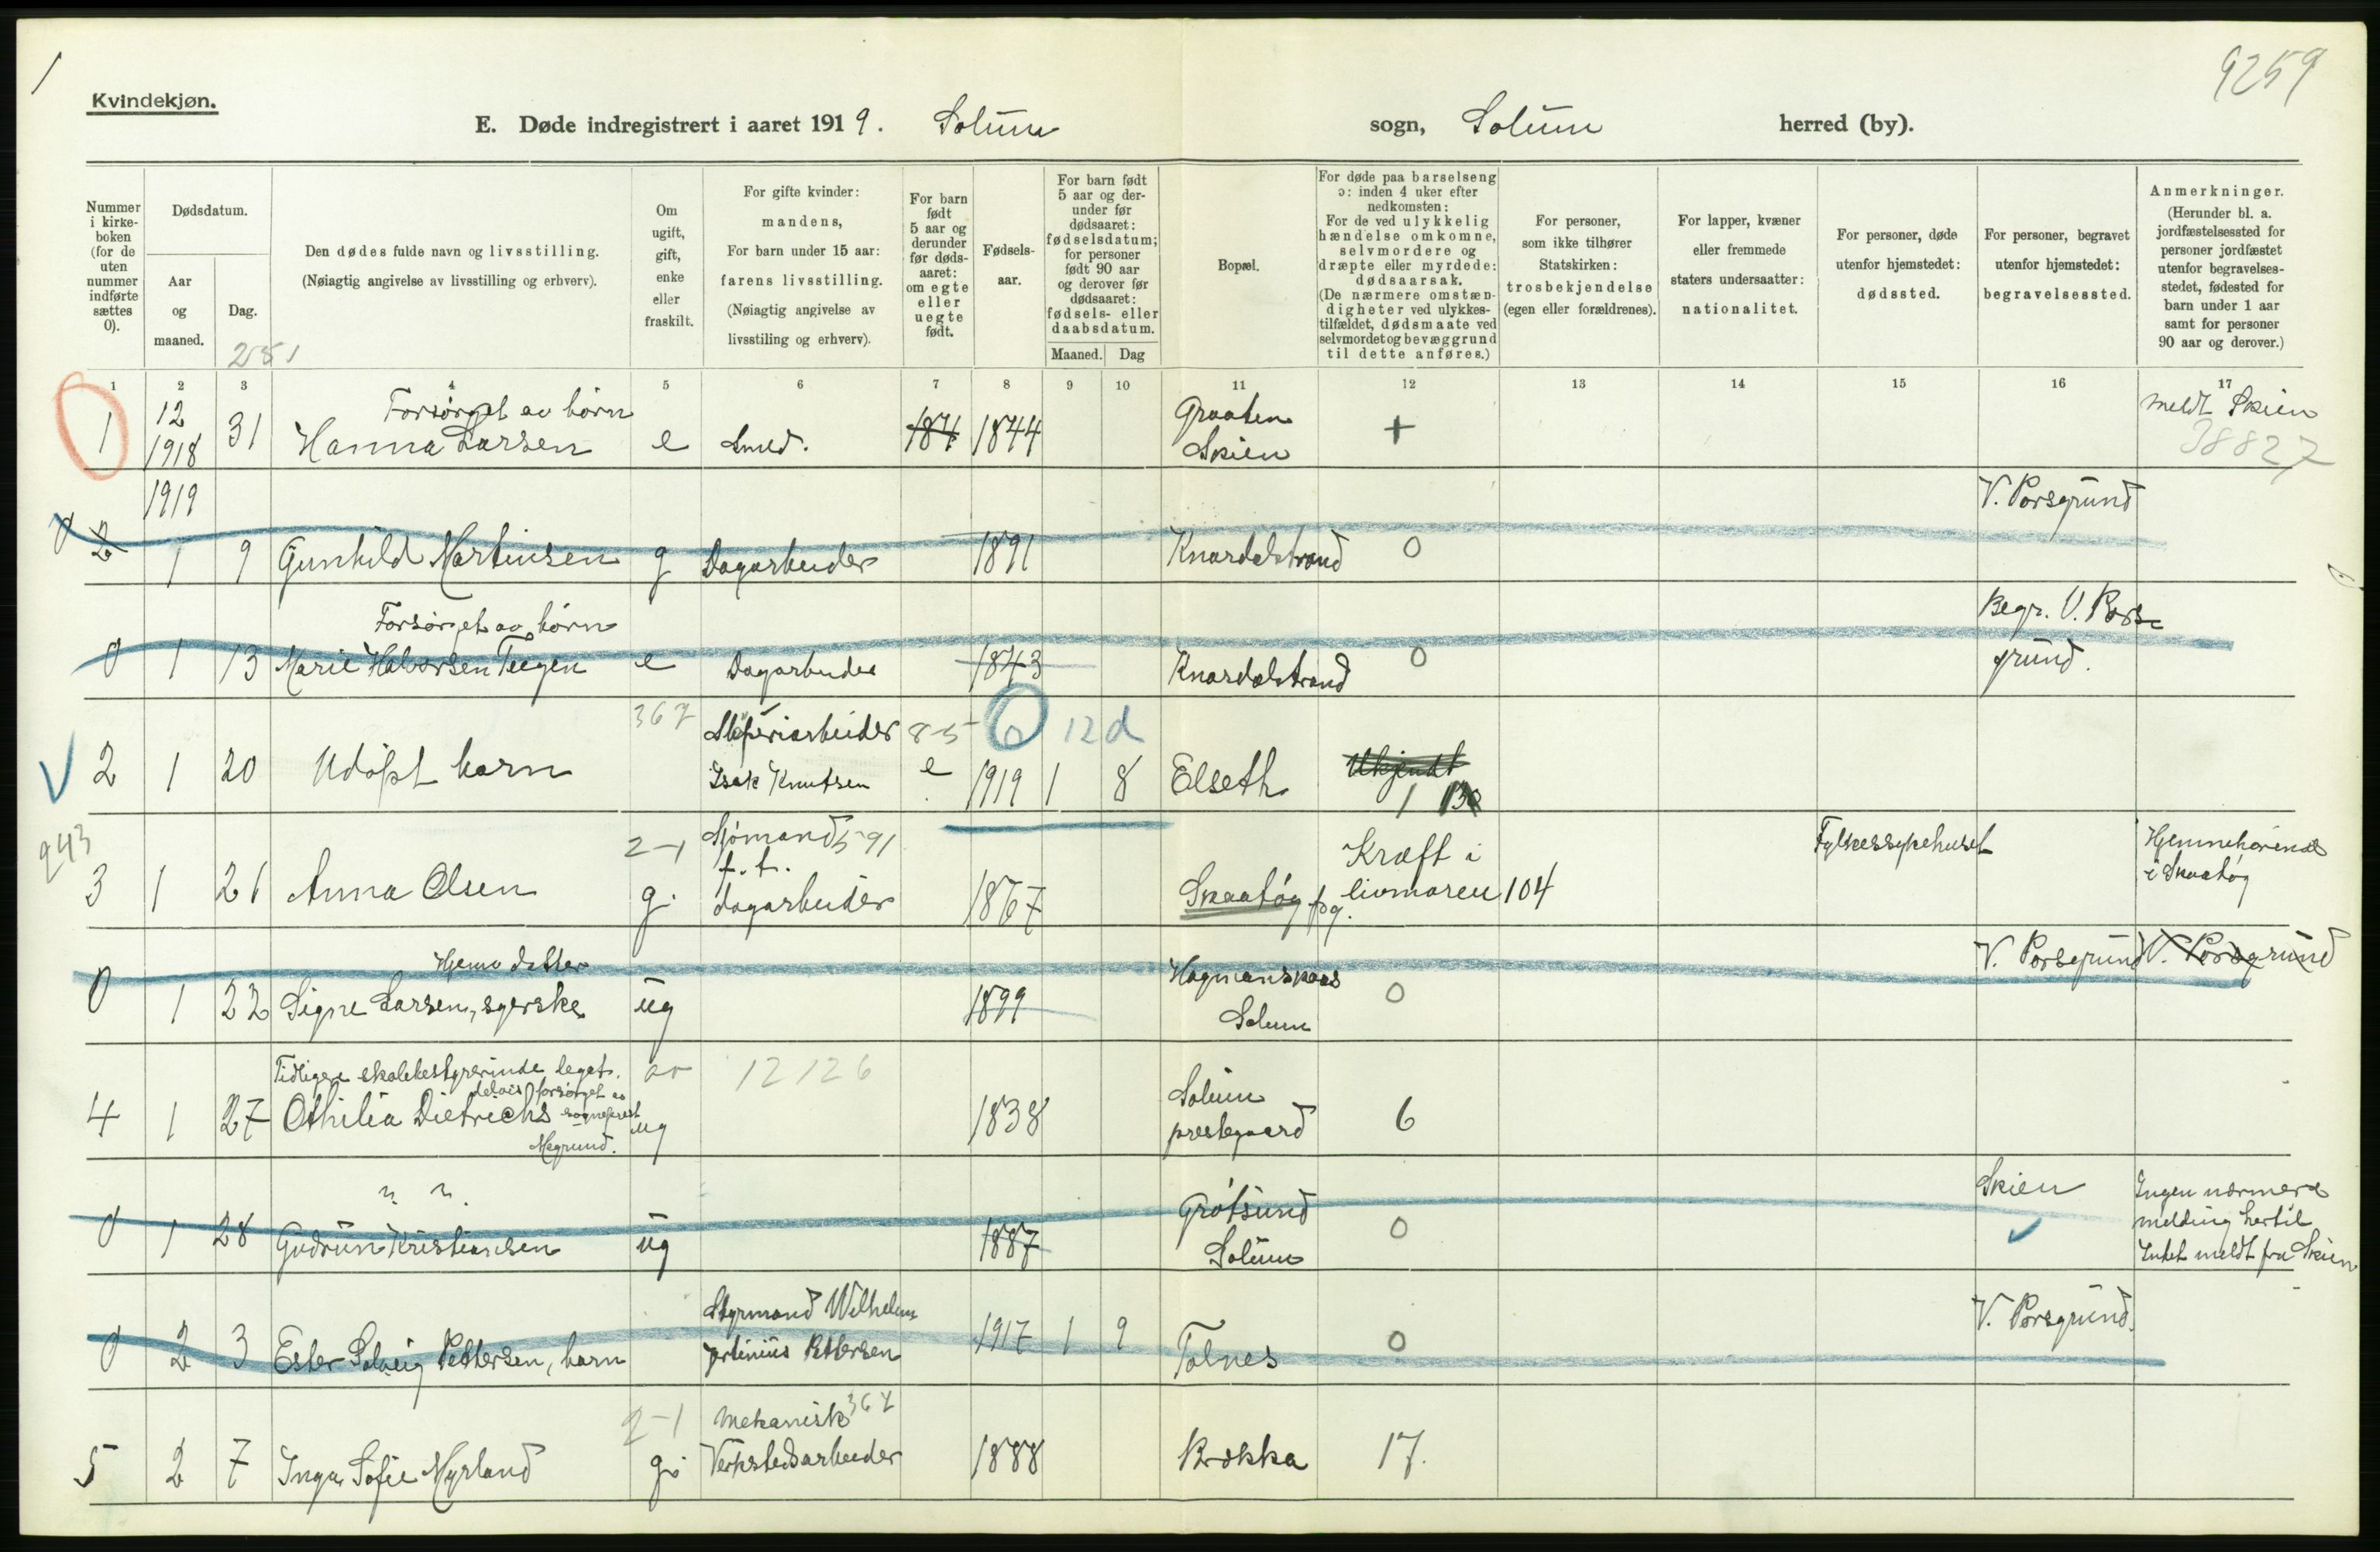 1
9259
Kvindekjøn.
E. Døde indregistrert i aaret 1919. Solum sogn, Solum herred (by).
Nummer i kirke-boken (for de uten nummer indførte sættes 0).
Dødsdatum.
Aar og maaned.
Dag.
251
Den dødes fulde navn og livsstilling.
(Nøiagtig angivelse av livsstilling og erhverv).
Om ugift, gift, enke eller fraskilt.
For gifte kvinder: mandens,
For barn under 15 aar: farens livsstilling.
(Nøiagtig angivelse av livsstiling og erhverv).
For barn født 5 aar og derunder før døds-aaret: om egte eller uegte født.
Fødsels-aar.
For barn født 5 aar og der-under før dødsaaret: fødselsdatum; for personer født 90 aar og derover før dødsaaret: fødsels- eller daabsdatum.
Maaned. Dag
Bopæl.
For døde paa barselseng ɔ: inden 4 uker efter nedkomsten:
For de ved ulykkelig hændelse omkomne, selvmordere og dræpte eller myrdede: dødsaarsak.
(De nærmere omstæn-digheter ved ulykkes-tilfældet, dødsmaate ved selvmordet og bevæggrund til dette anføres.)
For personer, som ikke tilhører Statskirken: trosbekjendelse (egen eller forældrenes).
For lapper, kvæner eller fremmede staters undersaatter: nationalitet.
For personer, døde utenfor hjemstedet: dødssted.
For personer, begravet utenfor hjemstedet: begravelsessted.
Anmerkninger.
(Herunder bl. a. jordfæstelsessted for personer jordfæstet utenfor begravelses-stedet, fødested for barn under 1 aar samt for personer 90 aar og derover.)
1 2 3 4 5 6 7 8 9 10 11 12 13 14 15 16 17
12 Forsørget av børn Graaten meldt Skien
1 1918 31 Hanna Larsen e Smed. 187 1844 Skien + 38827
1919 V. Porsgrund
0 2 1 9 Gunhild Martinsen g Dagarbeider 1891 Knardalstrand 0
Forsørget av børn Begr. V. Pors-
0 1 13 Marie Halvorsen Teigen e Dagarbeider 1843 Knardalstrand 0 grund.
367 Sliperiarbeider 8-5 6 12 d
2 1 20 Udøpt barn Isak Knutsen e 1919 1 8 Elseth Ukjendt
1 130
943 2-1 Sjømand 591 Kræft i Fylkessykehuset Hjemmehørende
f. t. i Skaatøy
3 1 21 Anna Olsen g. dagarbeider 1867 Skaatøy pg. livmoren 104
Hjemv. datter Hagmanskaas V. Porsgrund V. Porsgrund
0 1 22 Signe Larsen, syerske ug 1899 Solum 0
Tidligere skolebestyrerinde, legat. ar 12126 Solum
delvis forsørget av
4 1 27 Othilia Dietrichs sogneprest ug 1838 prestegaard 6
Megrund.
? ? Grøtsund Skien Ingen nærmere
melding hertil
0 1 28 Gudrun Kristiansen ug 1887 Solum 0 Intet meldt fra Skien
Styrmand Wilhelm V. Porsgrund.
0 2 3 Ester Solveig Pettersen, barn Pettersen 1917 1 9 Tolnes 0
2-1 Mekanisk 367
5 2 7 Inga Sofie Myrland g. Verkstedsarbeider 1888 Brekka 17.